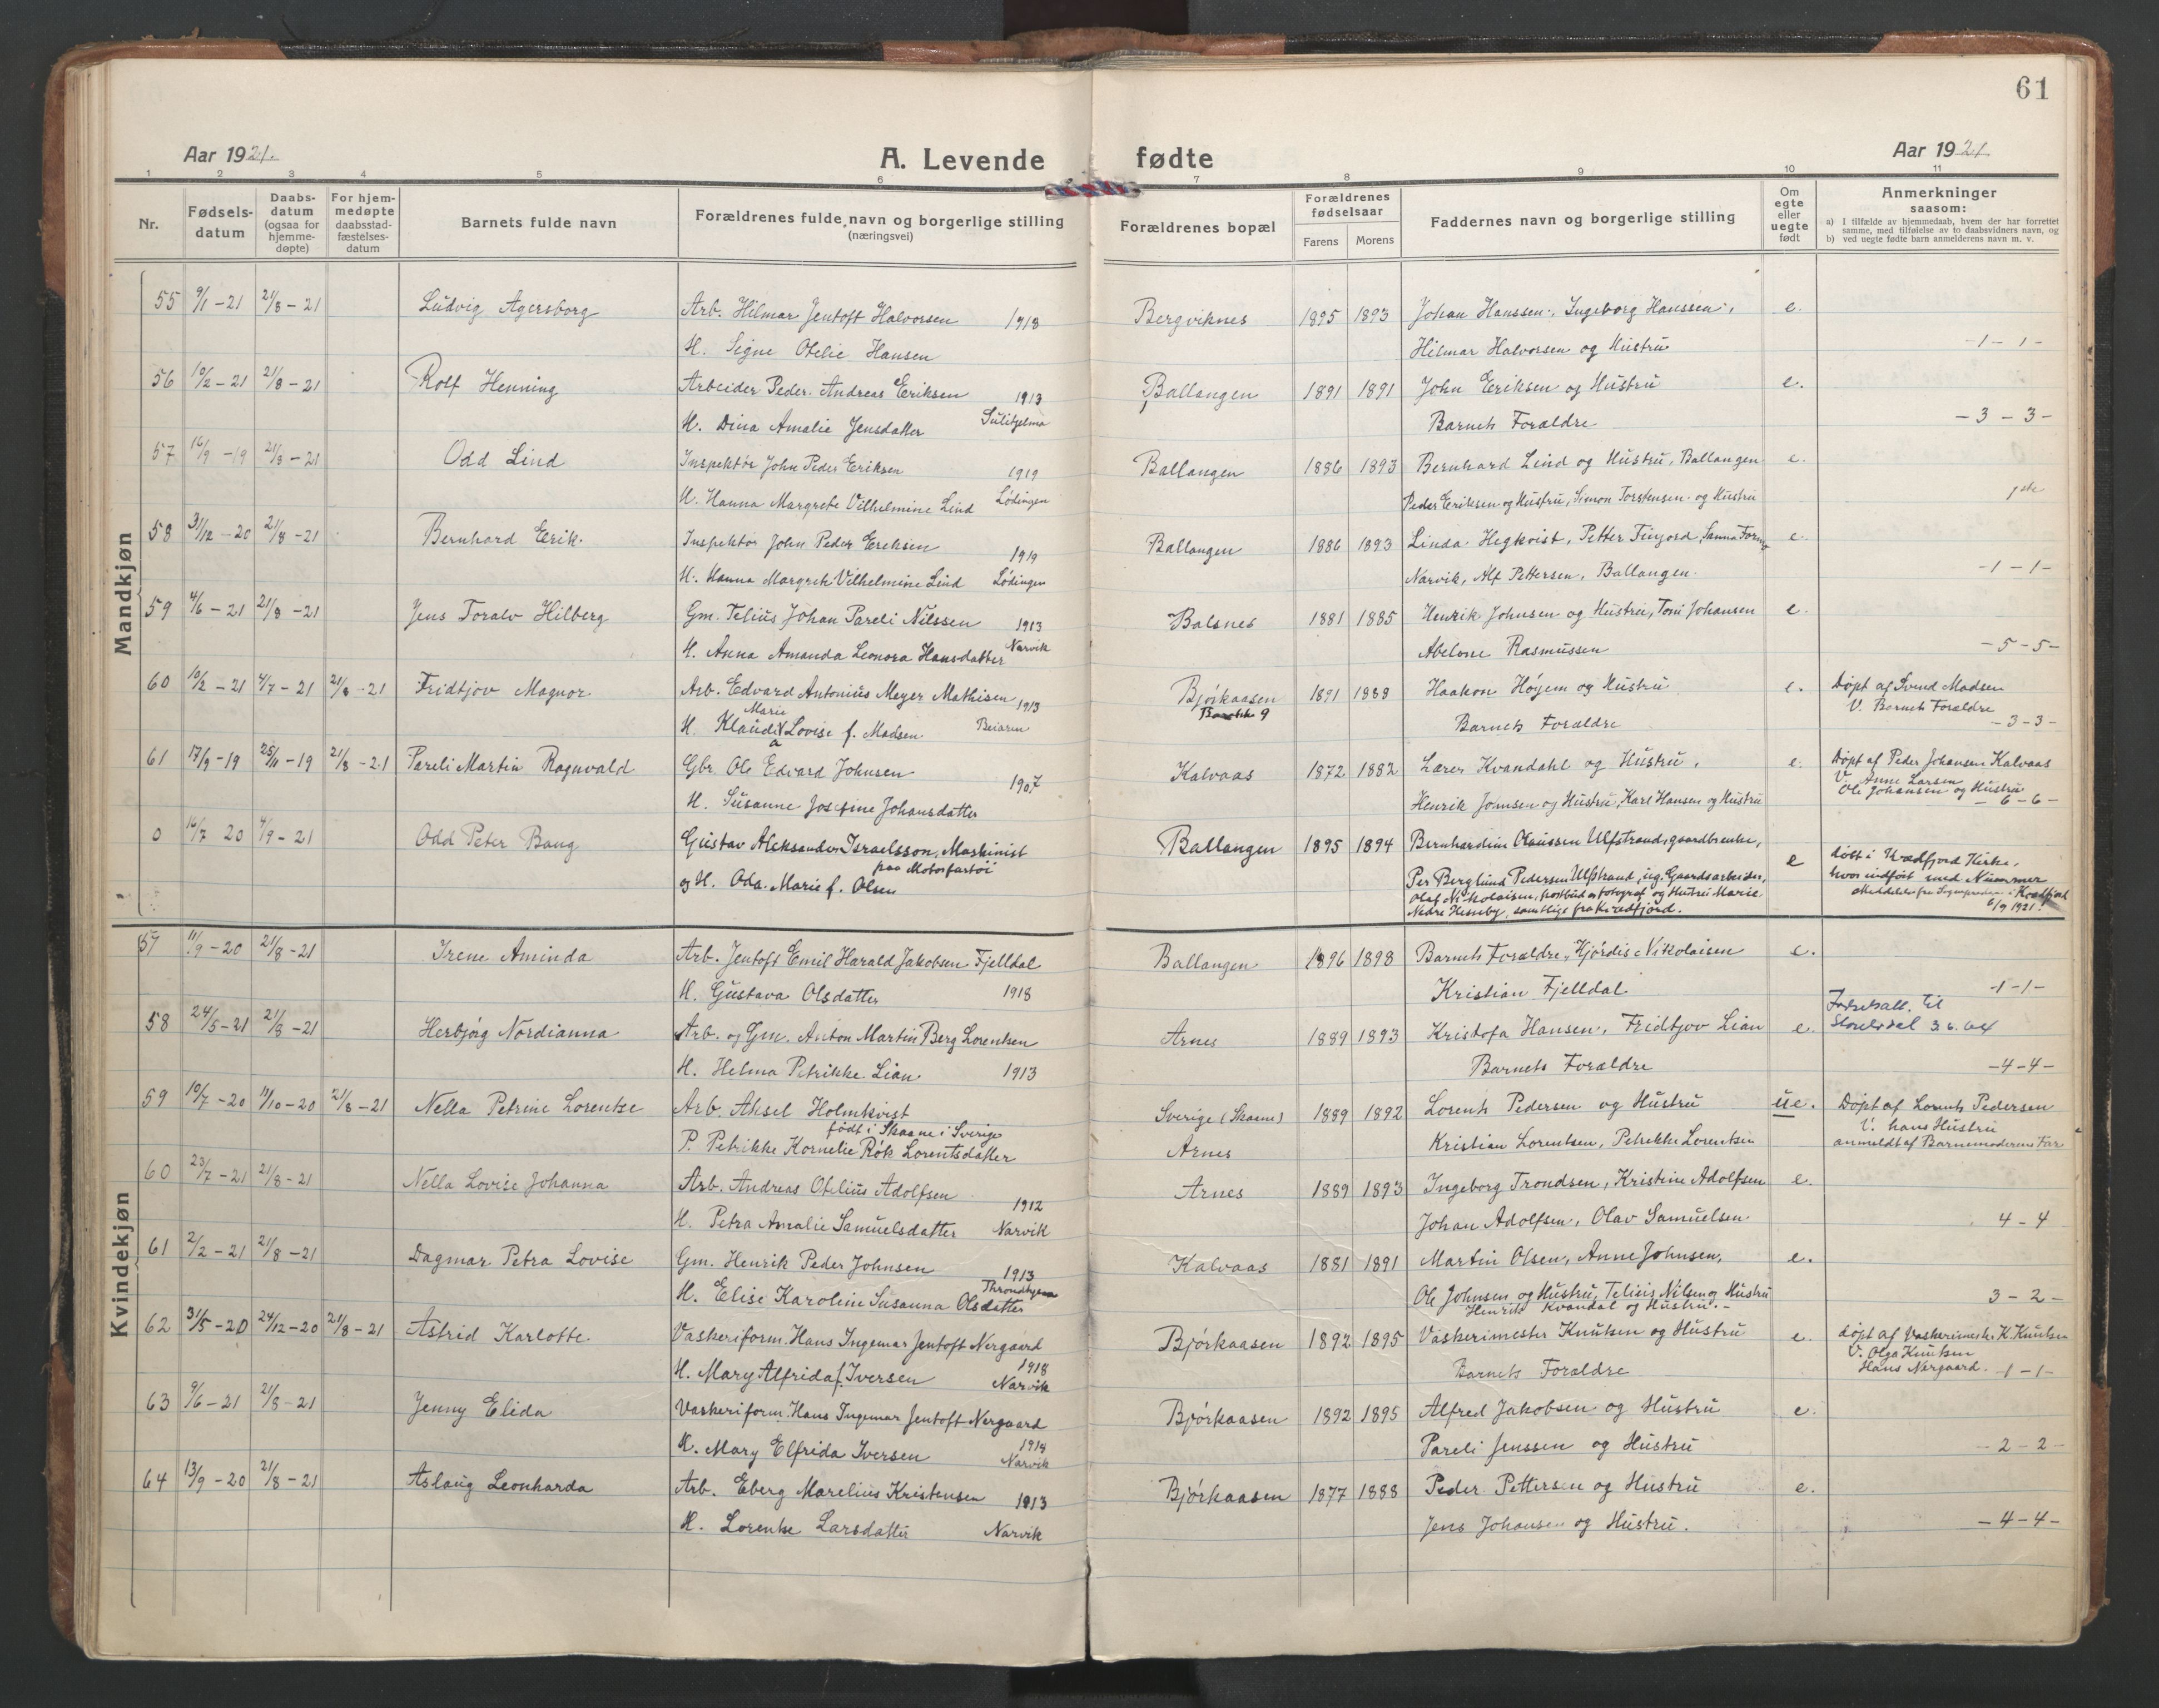 61
Aar 1921.
A. Levende fødte
Aar 1921
1 2 3 4 5 6 7 8 9 10 11
Nr.
Fødsels-datum
Daabs-datum (ogsaa for hjemme-døpte)
For hjem-medøpte daabsstad-fæstelses-datum
Barnets fulde navn
Forældrenes fulde navn og borgerlige stilling (næringsvei)
Forældrenes bopæl
Forældrenes fødselsaar
Farens Morens
Faddernes navn og borgerlige stilling
Om egte eller uegte født
Anmerkninger saasom:
a) I tilfælde av hjemmedaab, hvem der har forrettet samme, med tilføielse av to daabsvidners navn, og
b) ved uegte fødte barn anmelderens navn m. v.
Mandkjøn
55 9/1 - 21 21/8 - 21 Ludvig Agersborg Arb. Hilmar Jentoft Halvorsen 1918 Bergviknes 1895 1893 Johan Hanssen, Ingeborg Hanssen, e.
H. Signe Otelie Hansen Hilmar Halvorsen og Hustru -1-1-
56 10/2 - 21 21/8 - 21 Rolf Henning Arbeider Peder Andreas Eriksen 1913 Ballangen 1891 1891 John Eriksen og Hustru e.
H. Dina Amalie Jensdatter Sulitjelma Barnets Forældre - 3 - 3 -
57 16/9 - 19 21/8 - 21 Odd Lind Inspektør John Peder Eriksen 1919 Ballangen 1886 1893 Bernhard Lind og Hustru, Ballangen e.
H. Hanna Margrete Vilhelmine Lind Lødingen Peder Eriksen og Hustru, Simon Torstensen og Hustru 1ste
58 31/12 - 20 21/8 - 21 Bernhard Erik. Inspektør John Peder Ereksen 1919 Ballangen 1886 1893 Linda Hegkvist, Petter Finjord, Sanna e.
H. Hanna Margrete Vilhelmine Lind Lødingen Narvik, Alf Pettersen, Ballangen. -1-1-
59 4/6 - 21 21/8 - 21 Jens Toralv Hilberg Gm. Telius Johan Pareli Nilssen 1913 Balsnes 1881 1885 Henrik Johnsen og Hustru, Toni Johansen e.
H. Anna Amanda Leonora Hansdatter Narvik Abelone Rasmussen - 5 - 5 -
60 10/2 - 21 4/7 - 21 21/8 - 21 Fridtjov Magnor Arb. Edvard Antonius Meyer Mathisen 1913 Bjørkaasen 1891 1888 Haakon Høyem og Hustru e. Døpt af Svend Madsen
H. Klaudia Marie Lovise f. Madsen Beiaren Barak 9 Barnets Forældre V. Barnets Forældre - 3 - 3 -
61 17/9 - 19 25/11 - 19 21/8 - 21 Pareli Martin Ragnvald Gbr. Ole Edvard Johnsen 1907 Kalvaas 1872 1882 Lærer Kvandahl og Hustru, e. Døpt af Peder Johansen Kalvaas
H. Susanne Josefine Johansdatter Henrik Jomsen og Hustru, Karl Hansen og Hustru V. Anne Larsen Ole Johansen og Hustru - 6 - 6 -
0 16/7 20 4/9 - 21 Odd Peter Bang Gustav Aleksander Israelsson, Maskinist paa Motorfartøi Ballangen 1895 1894 Bernhardine Olaussen Ulfstrand, gaardbrenke, e
og H. Oda Marie f. Olsen Per Berglund Pedersen Ulfstrand, ug. Gaardsarbeider,
Olaf Nikolaisen, postbud og fotograf og Hustru Marie
Nedre Hemby, samtlige fra Kvædfjord.
døbt i Kvædfjord Kirke, hvor indført med Nummer
Meldelse fra Sogneprest i Kvædfjord 6/9 1921.
Kvindekjøn
57 11/9 - 20 21/8 - 21 Irene Aminda Arb. Jentoft Emil Harald Jakobsen Fjelldal Ballangen 1896 1898 Barnets Forældre, Hjørdis Nikolaisen e.
H. Gustava Olsdatter 1918 Kristian Fjelldal. -1-1-
58 24/5 - 21 21/8 - 21 Herbjørg Nordianna Arb. og Gm. Anton Martin Berg Lorentsen Arnes 1889 1893 Kristofa Hansen, Fridtjov Lian e. til 3.6.64
H. Helma Petrikke Lian 1913 Barnets Forældre - 4 - 4 -
59 10/7 - 20 11/10 - 20 21/8 - 21 Nella Petrine Lorentze Arb. Aksel Holmkvist født i Skaane i Sverige Sverige (Skaane) 1889 1892 Lorents Pedersen og Hustru ue. Døpt af Lorents Pedersen
P. Petrikke Kornelie Røk Lorentsdatter Arnes Kristian Lorentsen, Petrikke Lorentsen V. hans Hustru anmeldt af Barnemoderens Far
60 23/7 - 21 21/8 - 21 Nella Lovise Johanna Arb. Andreas Otelius Adolfsen 1912 Arnes 1889 1893 Ingeborg Trondsen, Kristine Adolfsen e.
H. Petra Amalie Samuelsdatter Narvik Johan Adolfsen, Olav Samuelsen 4 - 4
61 2/2 - 21 21/8 - 21 Dagmar Petra Lovise Gm. Henrik Peder Johnsen 1913 Kalvaas 1881 1891 Martin Olsen, Anne Johnsen, e.
H. Elise Karoline Susanna Olsdatter Throndhjem Ole Johnsen og Hustru, Telius Nilsen og Hustru Henrik Kvandal og Hustru. - 3 - 2 -
62 31/5 - 20 24/12 - 20 21/8 - 21 Astrid Karlotte. Vaskeriform. Hans Ingemar Jentoft Nergaard Bjørkaasen 1892 1895 Vaskerimester Knutsen og Hustru e. døpt af Vaskerimester K. Knutsen
H. Mary Alfrida f. Iversen 1918 Narvik Barnets Forældre V. Olga Knutsen Hans Nergaard. -1-1-
63 9/6 - 21 21/8 - 21 Jenny Elida Vaskeriform. Hans Ingemar Jentoft Nergaard Bjørkaasen 1892 1895 Alfred Jakobsen og Hustru e.
H. Mary Elfrida Iversen 1914 Narvik Pareli Jenssen og Hustru - 2 - 2 -
64 13/9 - 20 21/8 - 21 Aslaug Leonharda Arb. Eberg Marelius Kristensen 1913 Bjørkaasen 1877 1888 Peder Pettersen og Hustru e.
H. Lorentze Larsdatter Narvik Jens Johansen og Hustru. - 4 - 4 -